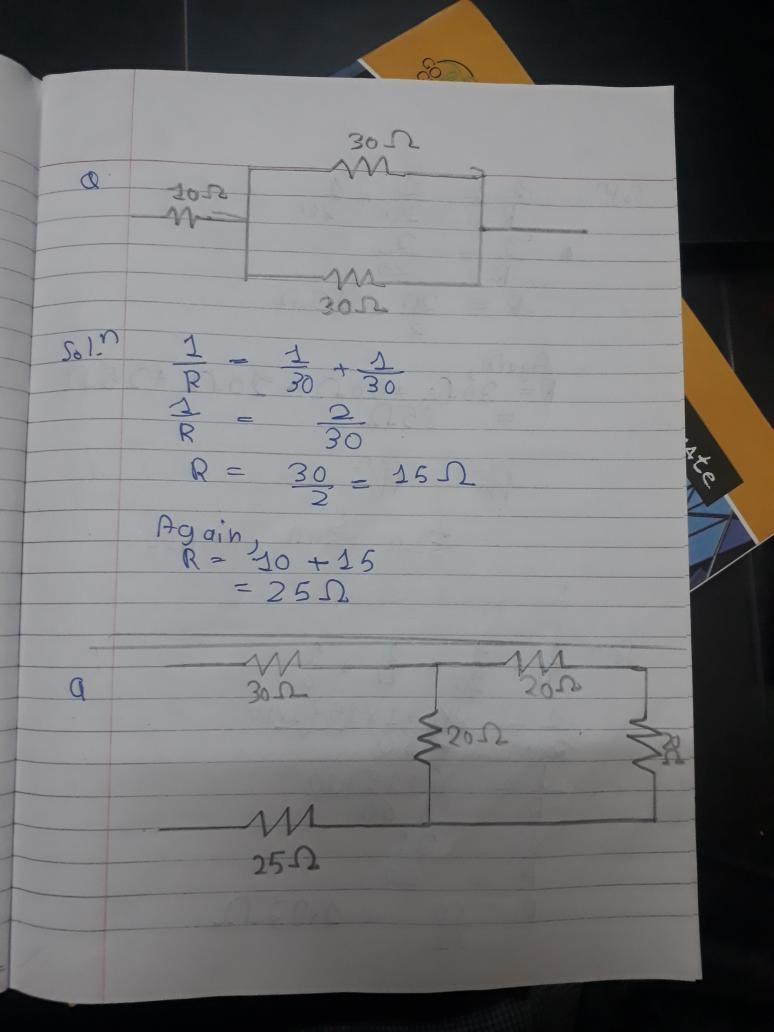 30Ω
Q 10Ω
30Ω
Solⁿ 1/R = 1/30 + 1/30
1/R = 2/30
R = 30/2 = 15Ω
Again,
R = 10 + 15
= 25Ω
Q 30Ω 20Ω
20Ω
25Ω